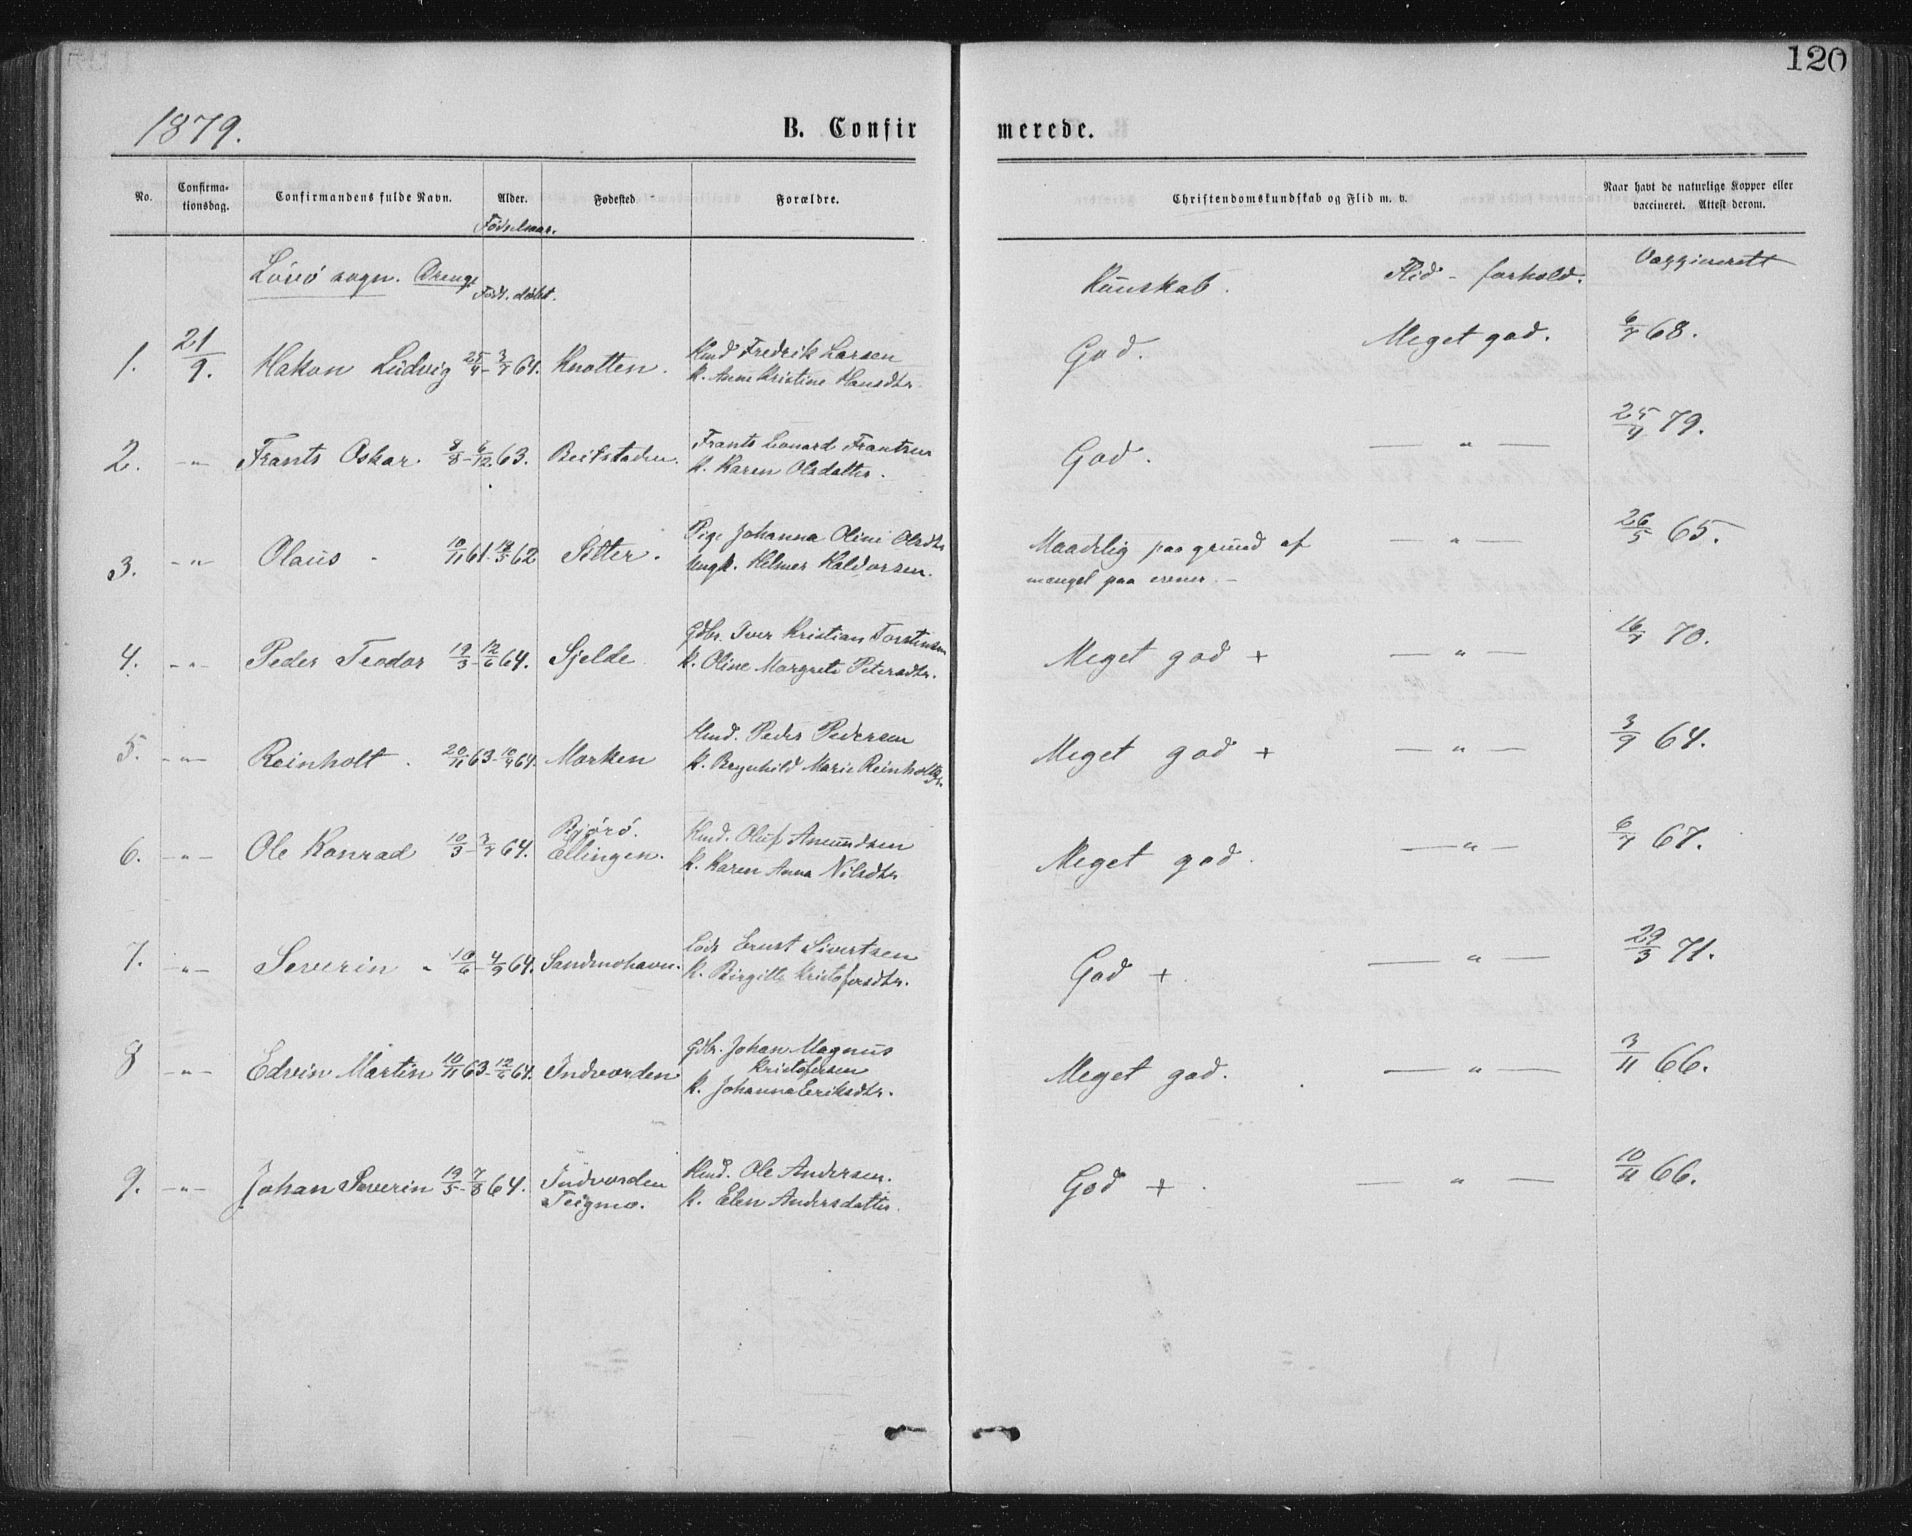 120
1879.
B. Confirmerede.
No.
Confirmationsdag.
Confirmandens fulde Navn.
Alder.
Fødselsaar.
Fødested
Forældre.
Christendomskundskab og Flid m. v.
Naar havt de naturlige Kopper eller vaccineret. Attest derom.
Lövö sogn. Drenge Född. döbt. Kunskab. Flid - forhold. Vaggineret
1. 21/9. Hakon Ludvig 25/4 - 3/7 64. Knotten. Kmd Fredrik Larsen God. Meget god. 6/7 68.
K. Anne Kristine Hansdtr
2. -"- Frants Oskar 8/8 - 6/12 63. Beitstaden. Frants Leonard Frantsen God. — " — 25/9 79.
K. Karen Olsdatter.
3. -"- Olaus 10/11 61 - 18/5 62 Sitter. Pige Johanna Oline Olsdtr Maadelig paa grund af — " — 26/5 65.
Ungk. Helmer Haldorsen. mangel paa evner. -
4. -"- Peder Teodor 19/3 - 12/6 64. Sjelde Gdbr. Iver Kristian Torstensen Meget god + — " — 16/7 70.
K. Oline Margrete Petersdtr.
5. -"- Reinholt. 20/11 63 - 10/4 64. Morken Kmd. Peder Pedersen Meget god + — " — 3/9 64.
K. Brynhild Marie Reinholtsdtr
6. -"- Ole Konrad 10/3 - 3/7 64. Bjørø. Ellingen. Kmd. Oluf Amundsen Meget god. — " — 6/7 67.
K. Karen Anna Nilsdtr
7. -"- Severin 18/6 - 4/9 64. Sandmohavn. Lods Ernst Sivertsen God + — " — 29/3 71.
K. Birgitte Kristofersdtr.
8 -"- Edvin Martin 10/11 63 - 12/6 64. Indvorden Gdbr. Johan Magnus Kristofersen Meget god. — " — 3/11 66.
K. Johanna Eriksdtr.
9. -"- Johan Severin 19/5 - 7/8 64. Indvorden Teigmo. Kmd. Ole Andersen. God + — " — 10/11 66.
K. Elen Andersdatter.